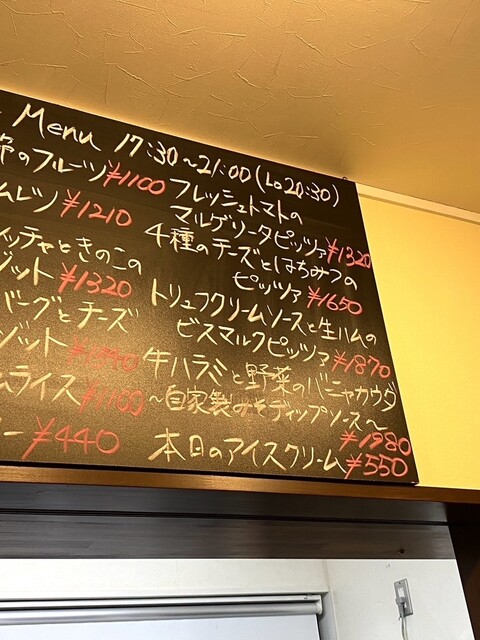 Menu 17:30~21:00(Lo20:30)
のフルーツ ¥1100
ムレツ ¥1210
ッチャときのこの
ゾット ¥1320
バーグとチーズ
ゾット
ムライス
ー ¥440
フレッシュトマトの
マルゲリータピッツァ ¥1320
4種のチーズとはちみつの
ピッツァ ¥1650
トリュフクリームソースと生ハムの
ビスマルクピッツァ ¥1870
牛ハラミと野菜のバーニャカウダ
~自家製みそディップソース~
¥1980
本日のアイスクリーム ¥550